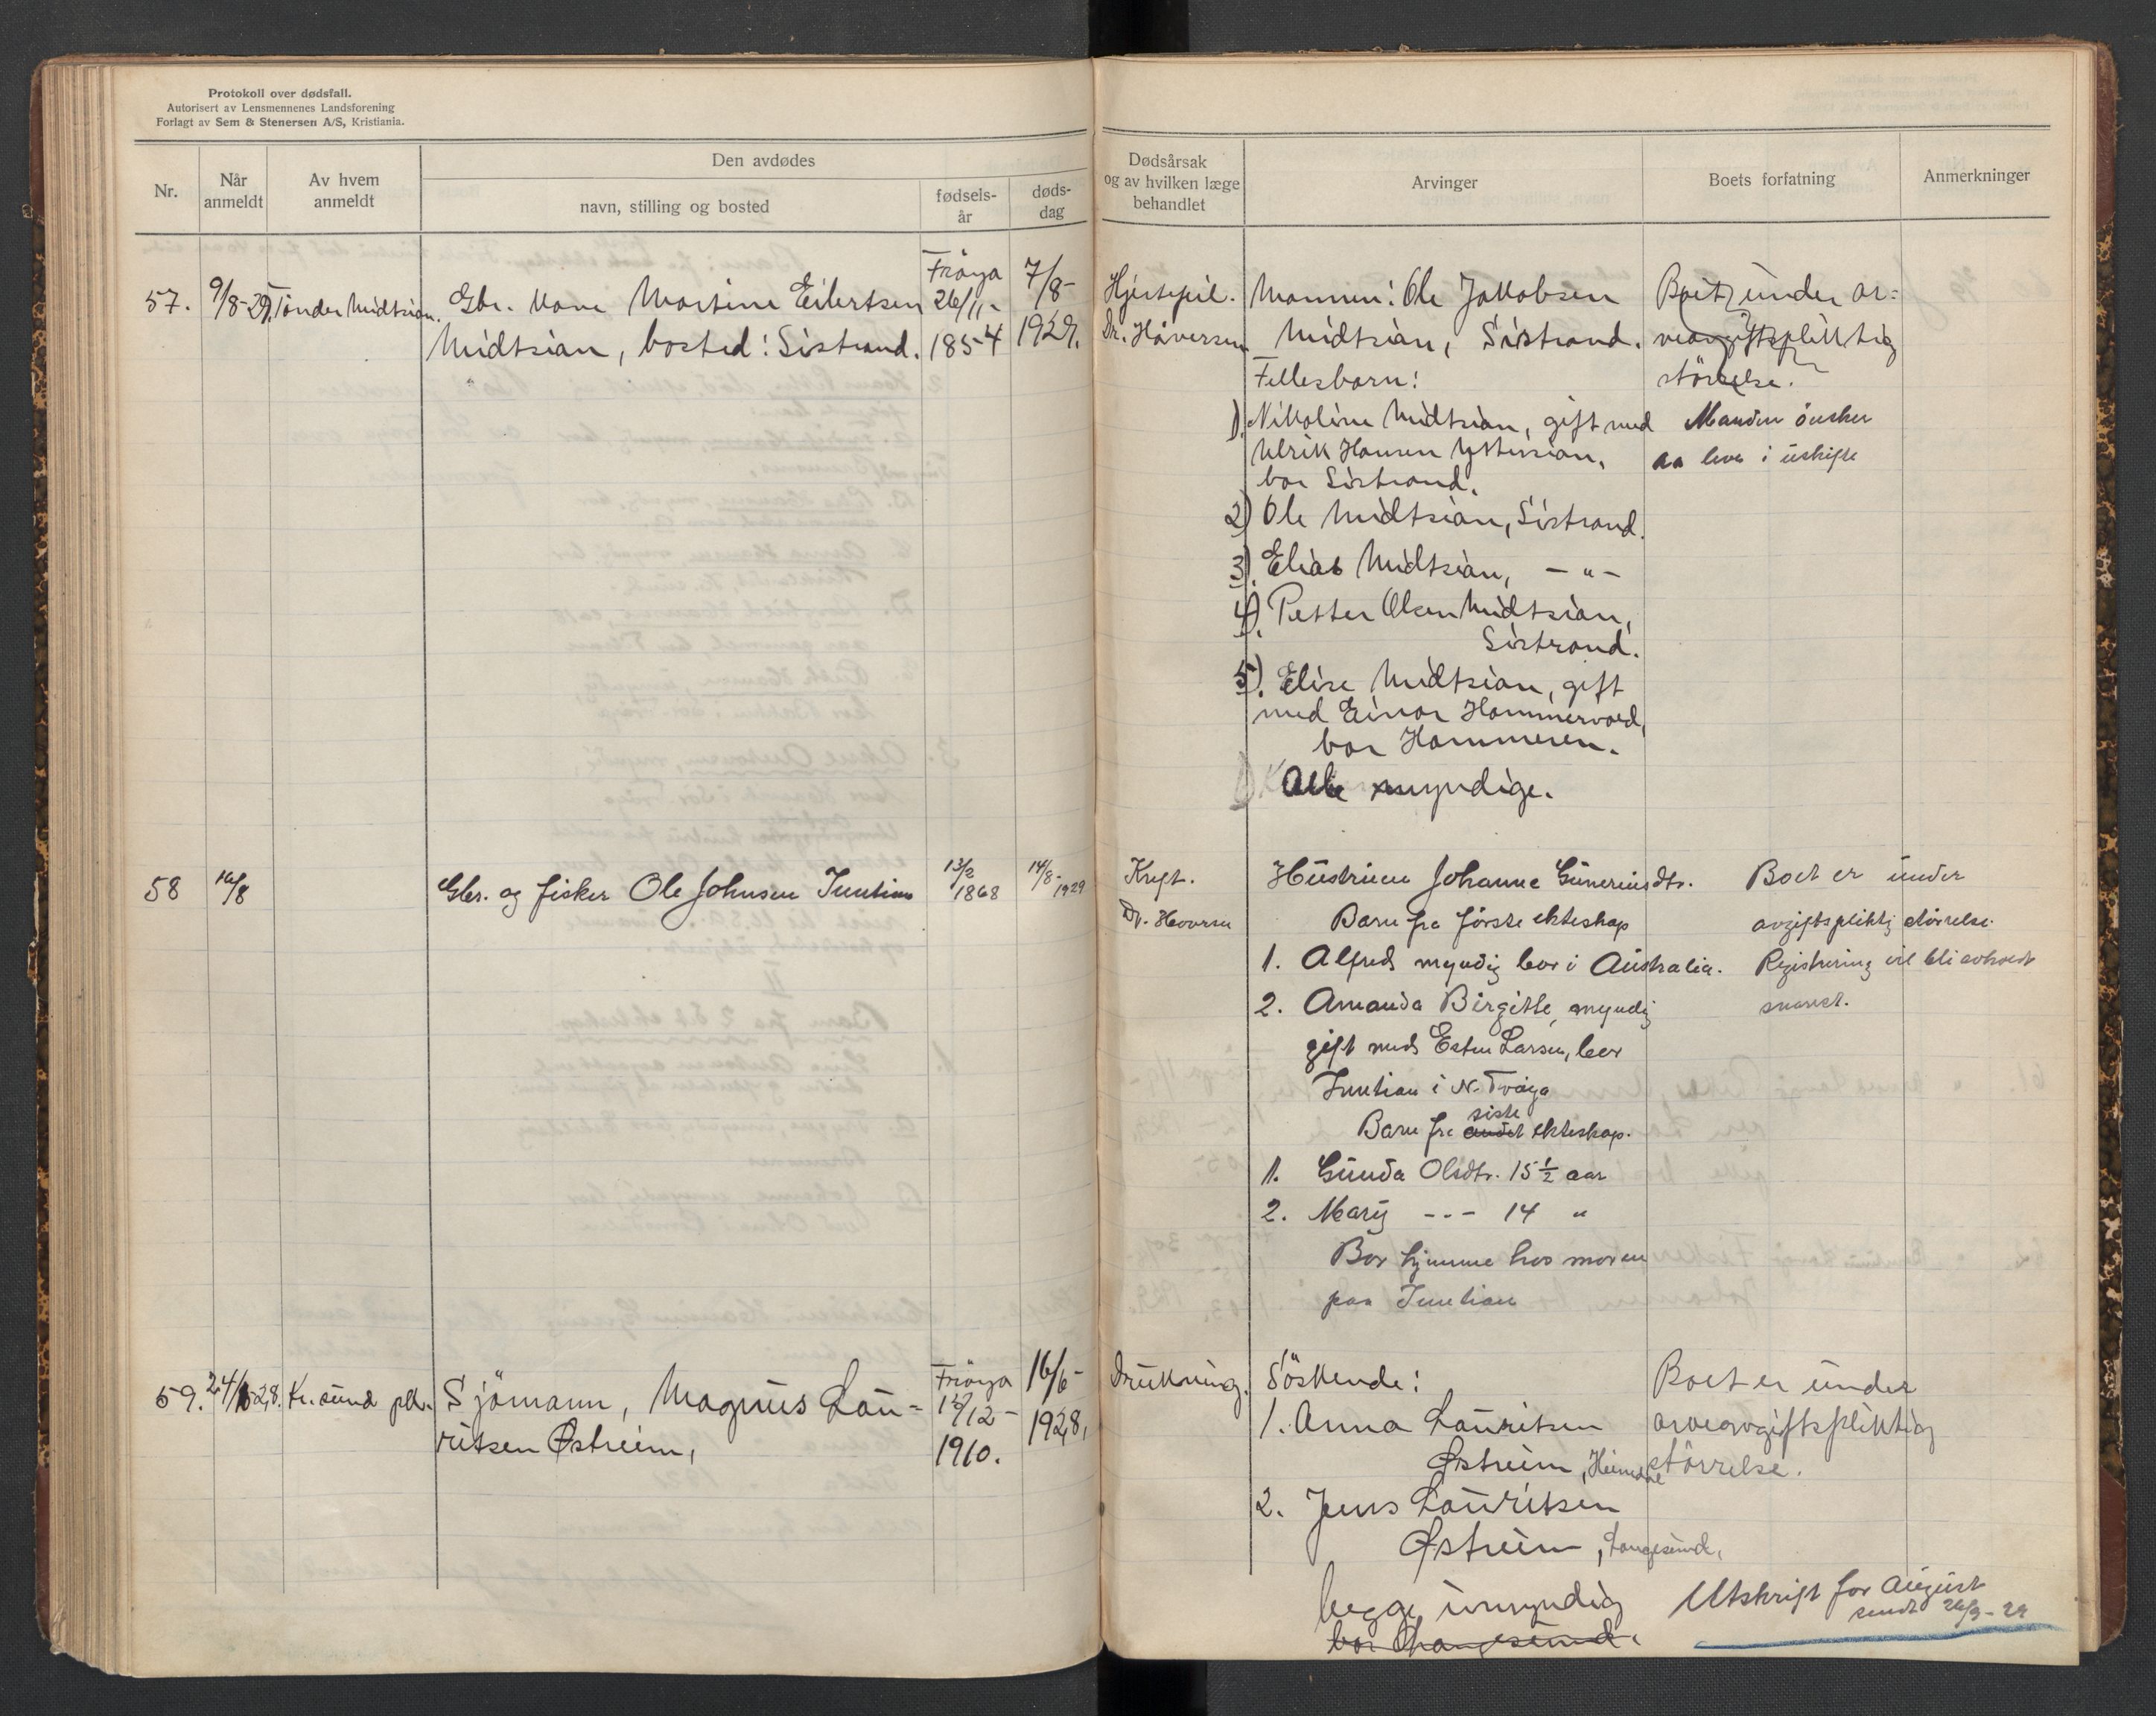 Protokoll over dødsfall.
Autorisert av Lensmennenes Landsforening
Forlagt av Sem & Stenersen A/S, Kristiania.
Nr.
Når anmeldt
Av hvem anmeldt
Den avdødes
navn, stilling og bosted
fødsels-år
døds-dag
Dødsårsak og av hvilken læge behandlet
Arvinger
Boets forfatning
Anmerkninger
57. 9/8-29. Tönder Midtsian. Gbr. kone Martine Eilertsen
Midtsian, bosted: Sistrand.
Fröya
26/11-
1854
7/8-
1929.
Hjertefeil.
Dr. Håversen
Mannen: Ole Jakobsen
Midtsian, Sistrand.
Fellesbarn:
1). Nikoline Midtsian, gift med
Ulrik Hansen Yttersian,
bor Sistrand.
2) Ole Midtsian, Sistrand.
3). Elias Midtsian, — " —
4). Petter Olsen Midtsian,
Sistrand.
5). Elise Midtsian, gift
med Einar Hammervold,
bor Hammeren.
Alle myndige.
Boet under ar-
veavgiftspliktig
størrelse.
Manden önsker
aa leve i uskifte
58 16/8 Gbr. og fisker Ole Johnsen Inntian
13/2
1868
14/8-
1929
Kreft.
Dr. Hoversen
Hustruen Johanne Guneriusdtr.
Barn fra første ekteskap
1. Alfred myndig bor i Australia.
2. Amanda Birgitte, myndig
gift med Esten Larsen, bor
Inntian i N. Fröya
Barn fra andet siste ekteskap.
1. Gunda Olsdtr. 15 1/2 aar
2. Mary - - - 14 "
Bor hjemme hos moren
paa Inntian
Boet er under
avgiftspliktig størrelse.
Registrering vil bli avholdt
snarest.
59. 24/8-28. Kr.sund pk. Sjömann, Magnus Lau-
ritsen Østreim,
Fröya
12/12-
1910.
16/6-
1928.
Drukning.
Söskende:
1. Anna Lauritsen
Østreim, Heimdal
2. Jens Lauritsen
Østreim, Langesund.
begge umyndig
bor Langesund.
Boet er under
arveavgiftspliktig
størrelse.
Utskrift for August
sendt 26/9-29